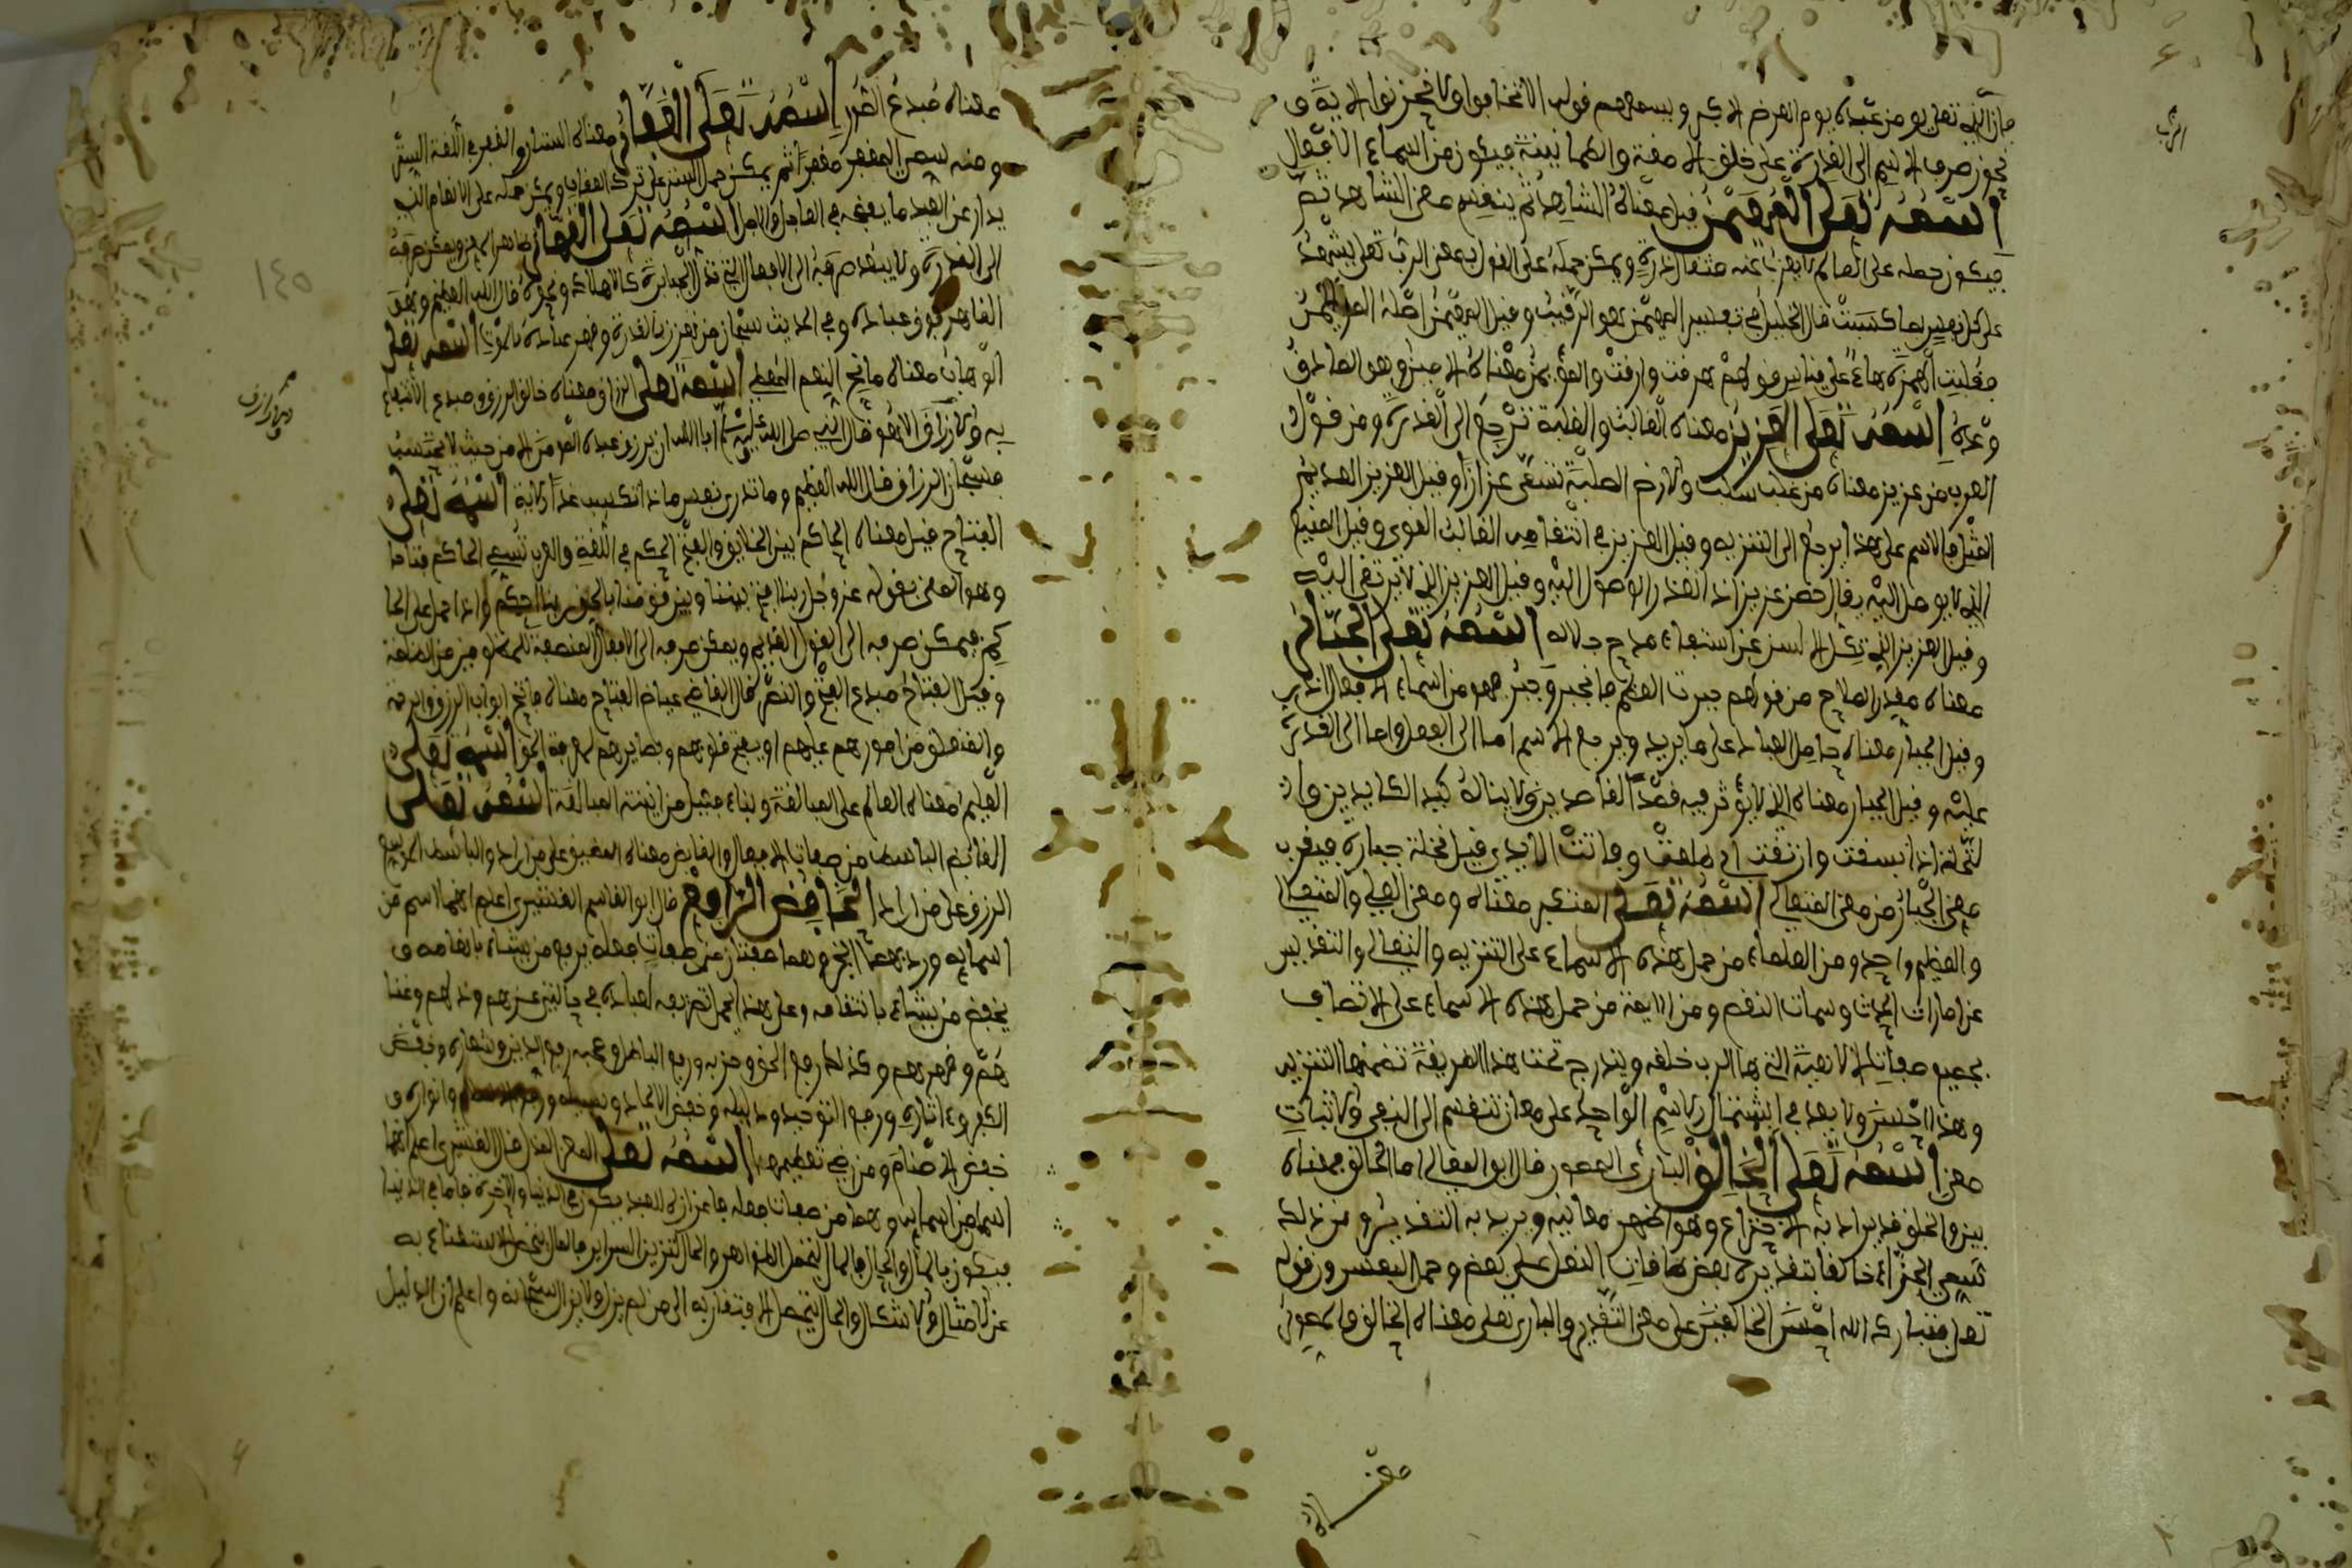 فإن الله تعلى يومن عبده يوم العرض الاكبر ويسمعهم قوله الا تخافوا ولا تحزنوا الاية و
يجوز صرف الاسم الى القدرة على خلق الامنة والطمانينة فيكون من اسماء الافعال
اسمه تعلى المهيمن قيل معناه الشاهد ثم ينقسم معنى الشاهد
فيكون حمله على العالم لا يعزب عنه مثقال ذرة ويمكن حمله على القول بمعنى الرب تعلى يشهد
على كل نفس بما كسبت قال الخليل في تفسير المهيمن هو الرقيب وقيل المهيمن اصله المؤيمن
فقلبت الهمزة هاء على قياس قولهم هرقت وارقت والمؤيمن معناه الامين وهو الصادق
وعده اسمه تعلى العزيز معناه الغالب والغلبة ترجع الى القدرة ومن قول
العرب من عز بز معناه من غلب سلب والارض الصلبة تسمى عزازا وقيل العزيز العديم
المثل والاسم على هذا يرجع الى التنزيه وقيل العزيز في انتقامه الغالب القوي وقيل المنيع
الذي لا يوصل اليه يقال حصن عزيز اذا تعذر الوصول اليه وقيل العزيز الذي لا يرتقى اليه
وقيل العزيز الذي تكل الالسن عن استيفاء مدح جلاله اسمه تعلى الجبار
معناه مصلح من قولهم جبرت العظم فانجبر وجبر فهو من اسماء الافعال
وقيل الجبار معناه حامل العباد على ما يريد ويرجع الاسم اما الى الفعل واما الى القدرة
عليه وقيل الجبار معناه الذي لا يؤثر فيه قصد القاصدين ولا يناله كيد الكايدين وا
لنخلة اذا بسقت وارتقت وفاتت الايدي قيل نخلة جبارة فيقرب
معنى الجبار من معنى المتعالي اسمه تعلى المتكبر معناه ومعنى العلي والمتعال
والعظيم واحد ومن العلماء من حمل هذه الاسماء على التنزيه والتعالي والتقديس
عن امارات الحدث وسمات النقص ومن الايمة من حمل هذه الاسماء على الاتصاف
بجميع صفات الالاهية التي بها الرب خلقه ويندرج تحت هذا الطريقة تضمنها التنزيه
وهذا احسن ولا بعد في اشتمال الاسم الواحد على معان تنقسم الى النفي والاثبات
معنى اسمه تعلى الخالق البارئ المصور قال ابو المعالي اما الخالق فمعناه
بين والخلق قد يراد به الاختراع وهو اظهر معانيه ويريد به التقدير ومن ذلك
تسمى الحذاء خالقا بتقديره بعض طاقات النعل على بعض وحمل المفسرون قوله
تعلى فتبارك الله احسن الخالقين على معنى التقدير والبارئ تعلى معناه الخالق والمصور
معناه مبدع الصور اسمه تعلى الغفار معناه الستار والغفر في اللغة الستر
ومنه سمي المغفر مغفرا ثم يمكن حمل الستر على ترك العقاب ويمكن حمله على الانعام الذي
يدرأ عن العبد ما يفضحه في العاجل والاجل اسمه تعلى القهار ظاهر المعنى ويمكن صرفه
الى القدرة ولا يبعد صرفه الى الافعال التي تذل الجبابرة كالاهلاك ونحوه قال الله العظيم وهو
القاهر فوق عباده وفي الحديث سبحان من تعزز بالقدرة وقهر عباده بالموت اسمه تعلى
الوهاب معناه مانح النعم المعطي اسمه تعلى الرزاق ومعناه خالق الرزق ومبدع الانتفاع
به ولا رزاق الا هو قال النبي صلى الله عليه وسلم ابا الله ان يرزق عبده المومن الا من حيث لا يحتسب
فسبحان الرزاق قال الله العظيم وما تدري نفس ماذا تكسب غدا الاية اسمه تعلى
الفتاح قيل معناه الحاكم بين الخلايق والفتح الحكم في اللغة والعرب تسمي الحاكم فتاحا
وهو المعنى بقوله عز وجل ربنا افتح بيننا وبين قومنا بالحق ربنا احكم واذا حمل على الحا
كم فيمكن صرفه الى القول القديم ويمكن صرفه الى الافعال المنصفة للمظلومين من الظلمة
وقيل الفتاح مبدع الفتح والنصر قال القاضي عياض الفتاح معناه فاتح ابواب الرزق والرحمة
والمنغلق من امورهم عليهم او يفتح قلوبهم وبصايرهم لمعرفة الحق اسمه تعلى
العليم معناه العالم على المبالغة وبناء فعيل من ابنية المبالغة اسمه تعلى
القابض الباسط من صفات الافعال والقابض معناه المضيق على من اراد والباسط الموسع
الرزق على من اراد الخافض الرافع قال ابو القاسم القشيري اعلم انهما اسم من
اسمايه ورد بهما الخبر وهما صفتان من صفات فعله يرفع من يشاء بانعامه و
يخفض من يشاء بانتقامه وعلى هذا يحمل تصريفه لعباده في حالتي عزهم وذلهم وغنا
هم وفقرهم وكذلك رفع الحق وحزبه ودفع الباطل وصحبه رفع الدين وشعاره وخفض
الكفر واثاره ورفع التوحيد ودليله وخفض الالحاد وسبيله وانواره و
خفض الاصنام ومن رضي تعظيمها اسمه تعلى المعز المذل قال القشيري اعلم انهما
اسمان من اسمايه وهما من صفات فعله فاعزازه للعبد يكون في الدنيا والاخرة فاما في الدنيا
فيكون بالمال والحال فالمال لتجمل الظواهر والحال لتزيين السراير فالمال يحصل الاستغناء به
عن الامثال والاشكال والحال يتحصل الافتقار به الى من لم يزل ولا يزال سبحانه واعلم ان الدليل
١٤٥